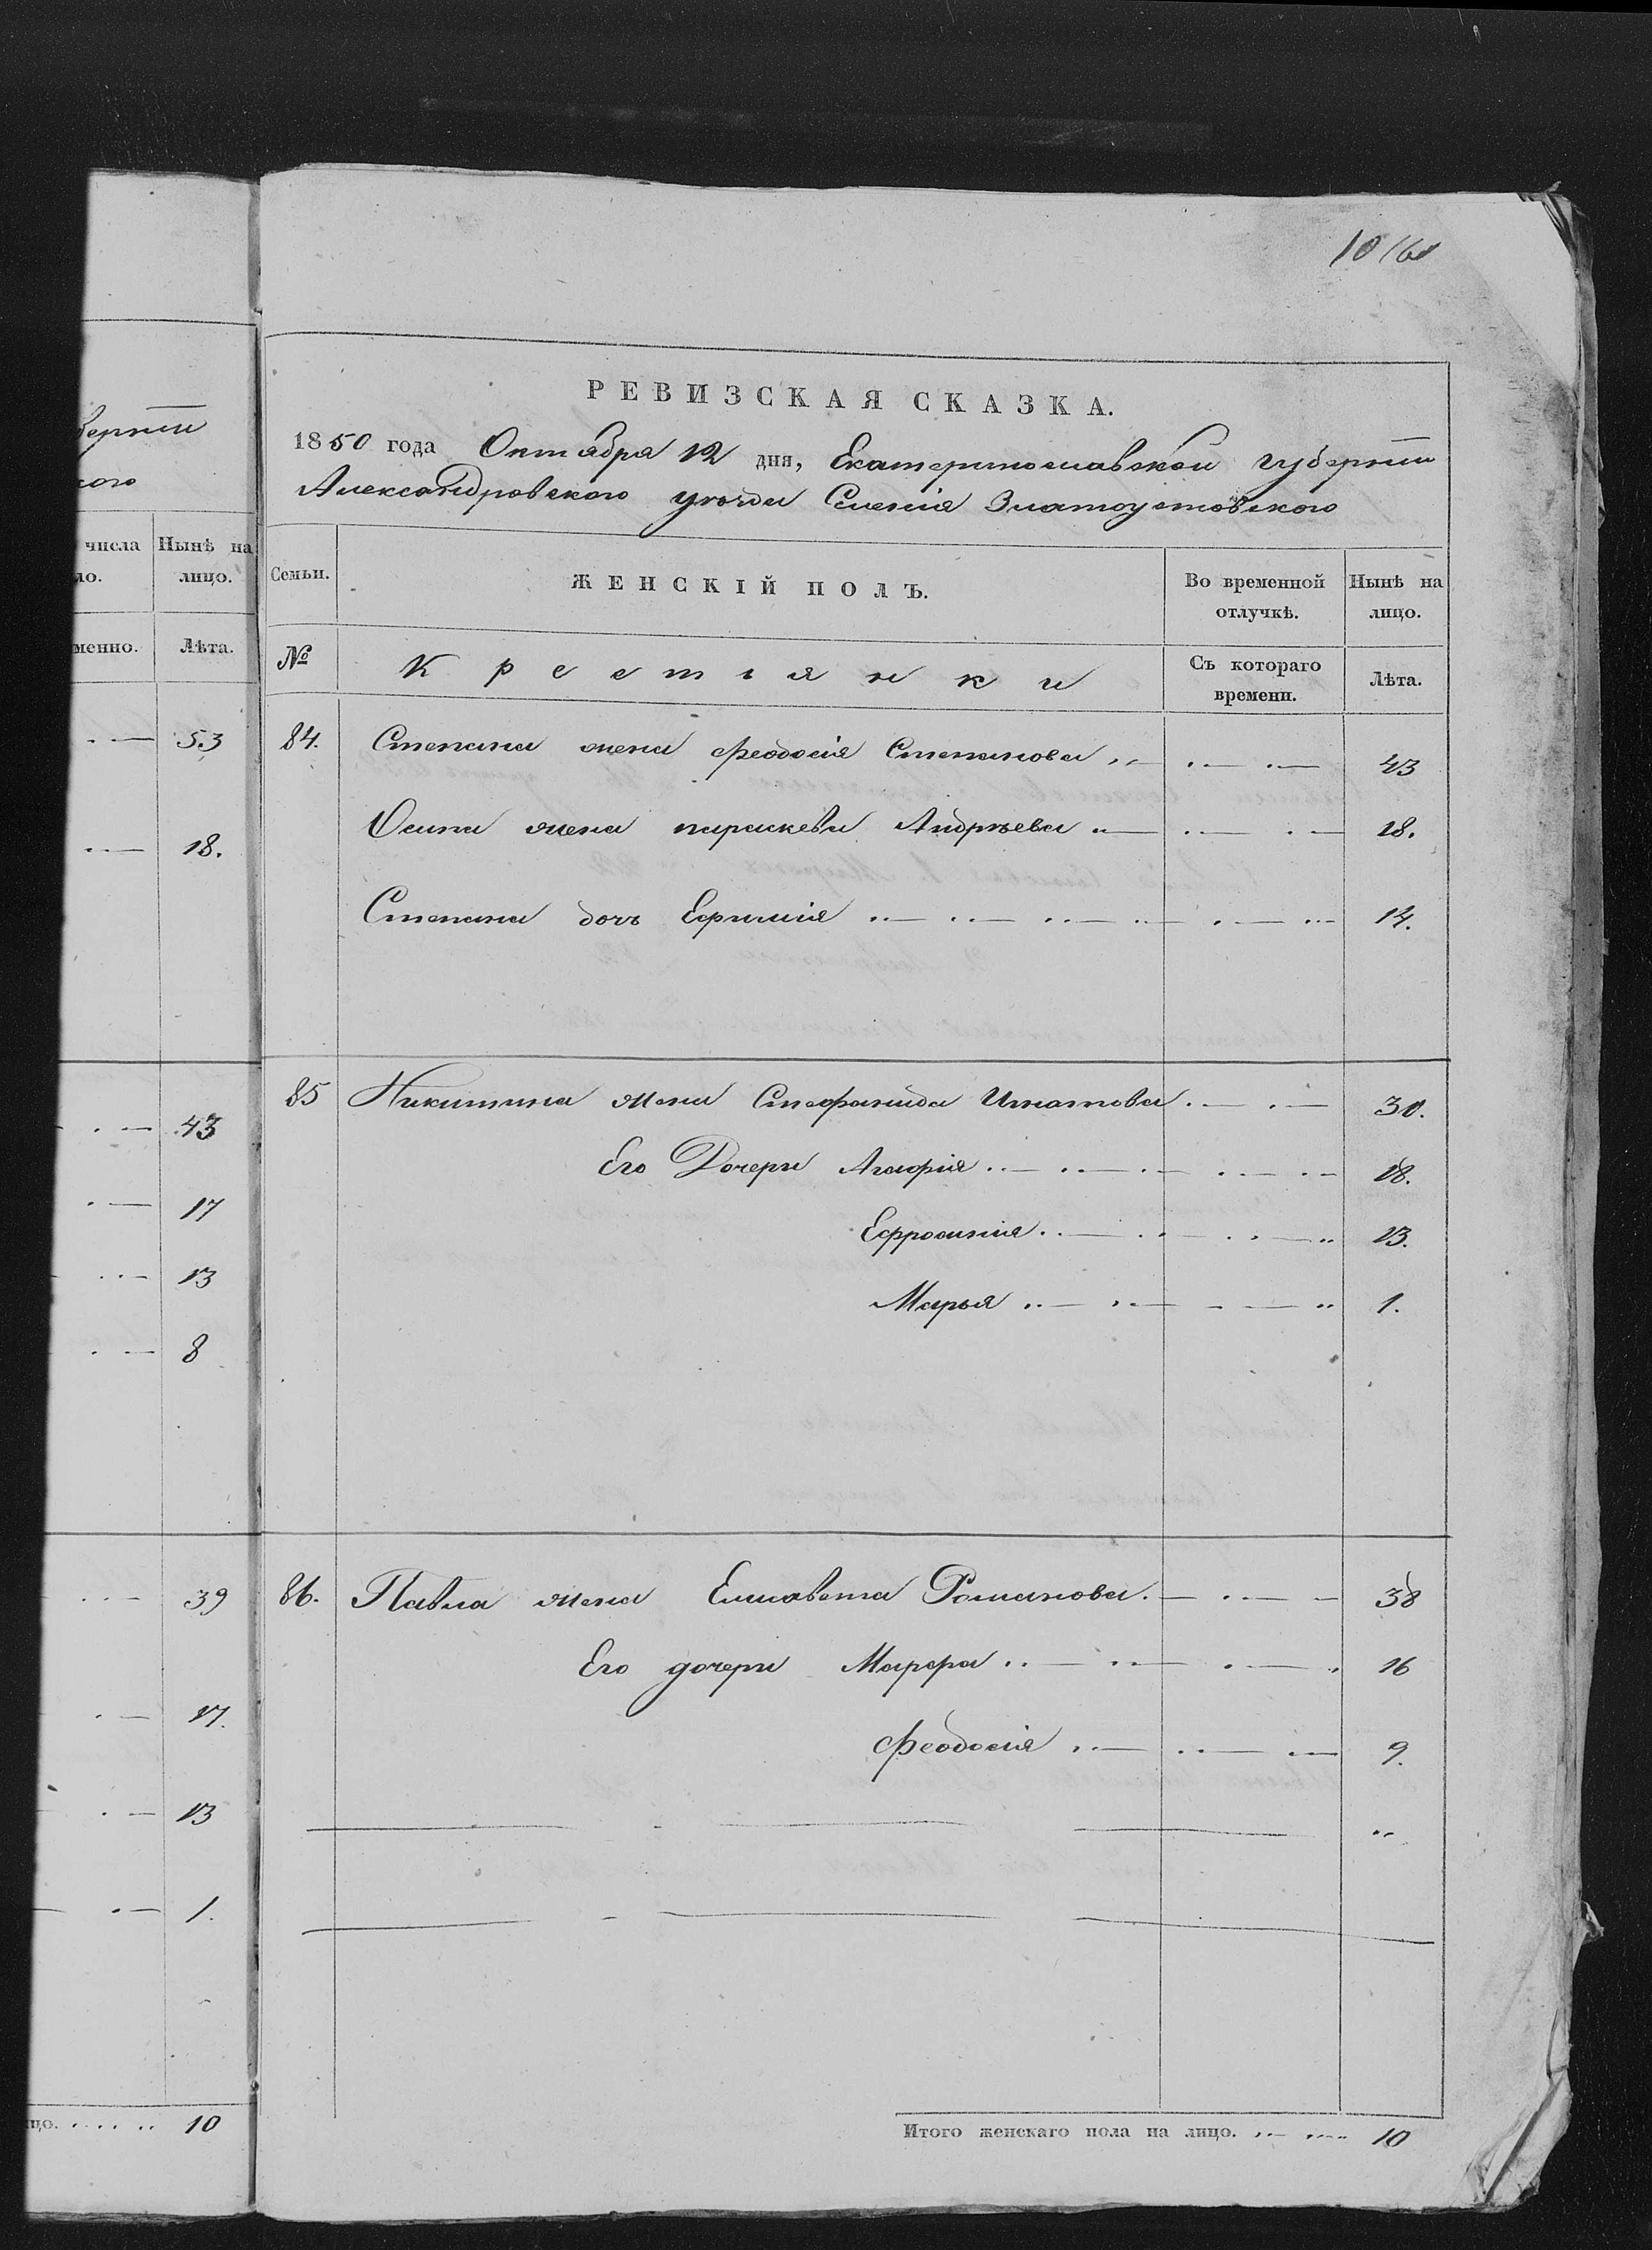 берніи
кого
числа Нынѣ на
ло. лицо.
менно. Лѣта.
53
18.
43
17
13
8
39
17.
13
1.
цо. 10
РЕВИЗСКАЯ СКАЗКА.
1850 года Октября 12 дня, Екатеринославской губерніи
Александровского уѣзда Селенія Златоустовского
Семьи. ЖЕНСКІЙ ПОЛЪ. Во временной отлучкѣ. Нынѣ на лицо.
№ Крестіянки Съ котораго времени. Лѣта.
84. Степана жена Феодосія Степанова 43
Осипа жена параскева Андрѣева 18.
Степана дочь Ефимія 14.
85 Никитина жена Стефанида Игнатова 30.
Его Дочери Агафія 18.
Ефросинія 13.
Марья 1.
86. Павла жена Елисавета Романова 38
Его дочери Марфа 16
Феодосія 9.
Итого женскаго пола на лицо. 10